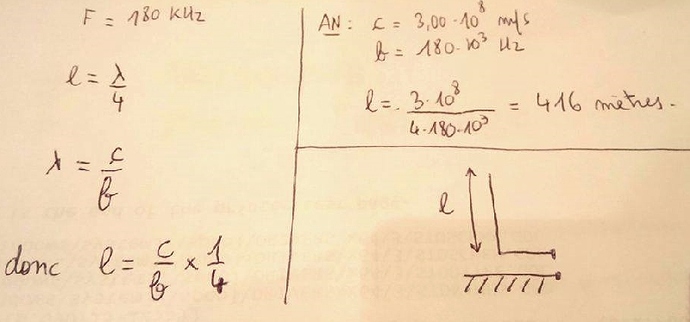 F = 180 KHz
l = λ/4
λ = c/f
donc l = c/f × 1/4
AN : c = 3,00·10⁸ m/s
f = 180·10³ Hz
l = 3·10⁸/4·180·10³ = 416 mètres.
l